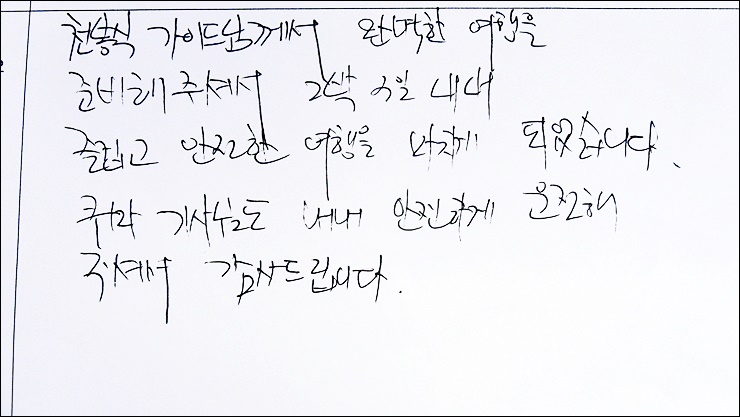 천봉식 가이드님께서 완벽한 여행을
준비해주셔서 2박 3일 내내
즐겁고 안전한 여행을 마치게 되었습니다.
기사님도 내내 안전하게 운전해
주셔서 감사드립니다.